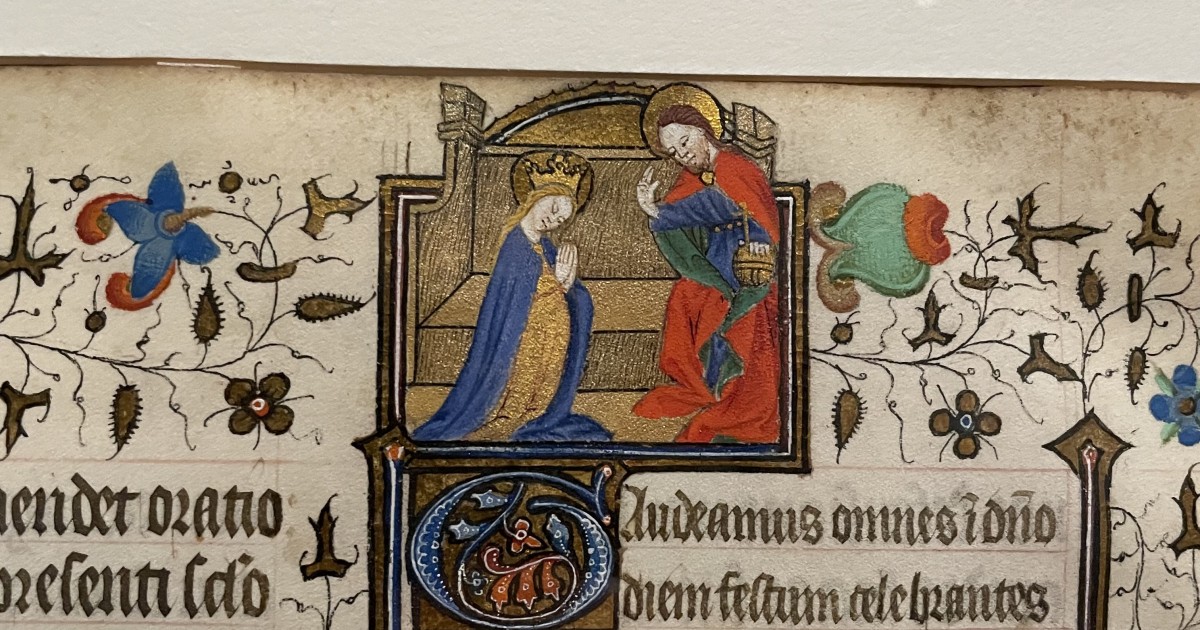 mendet oratio
presenti scl̄o
GAudeamus omnes ī dn̄o
diem festum celebrantes